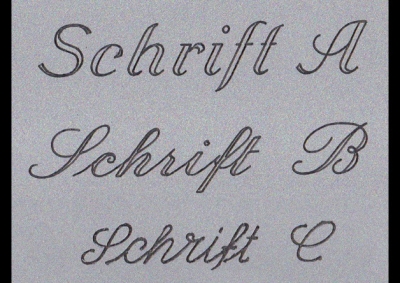 Schrift A
Schrift B
Schrift C